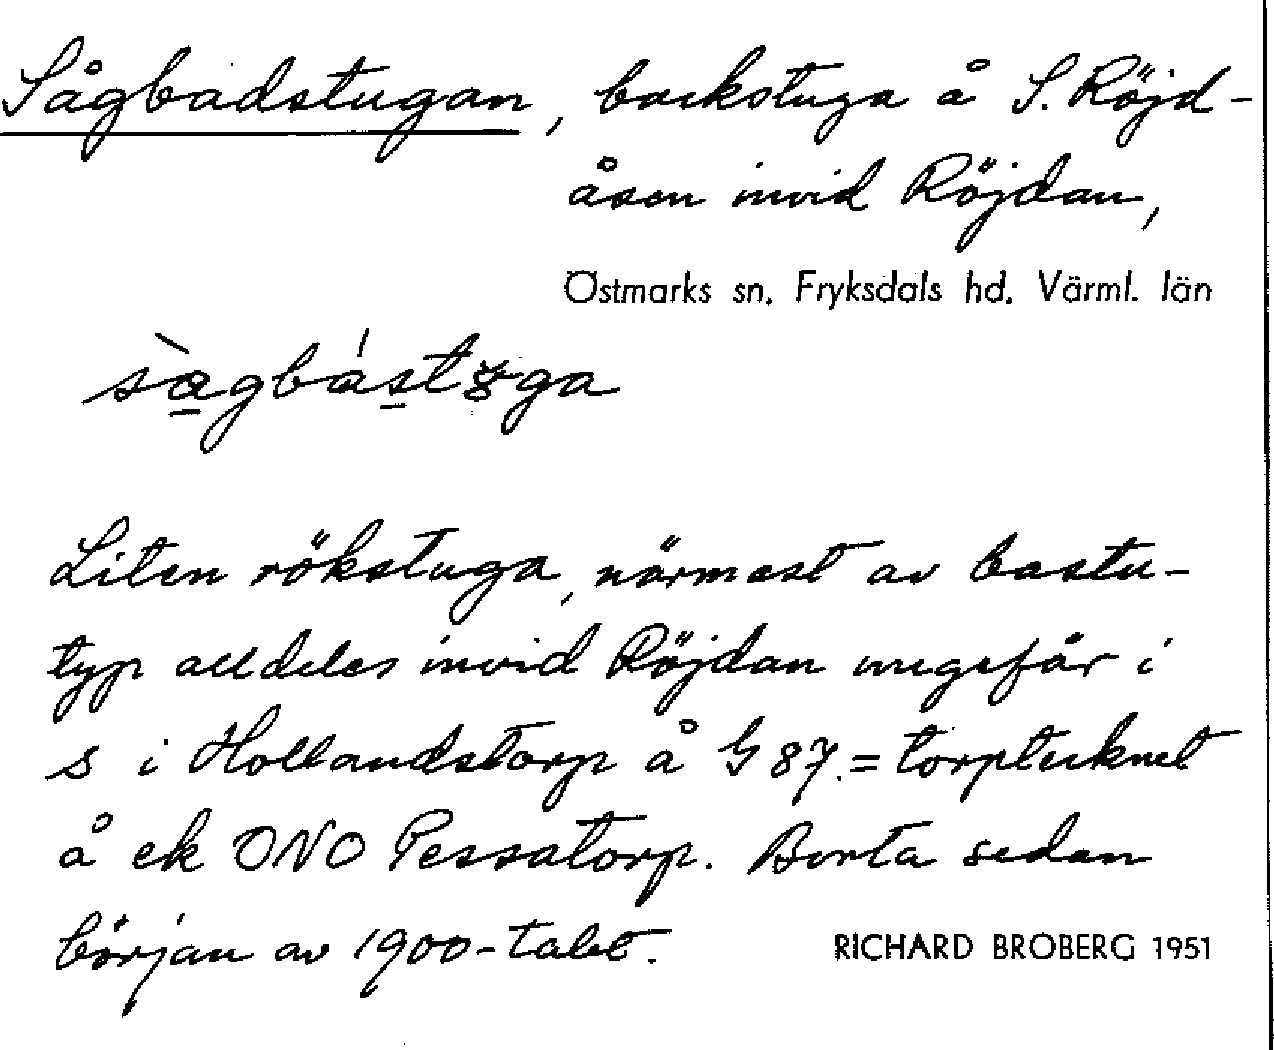 Sågbadstugan, backstuga å S. Röjd-
åsen invid Röjdan,
Östmarks sn. Fryksdals hd. Värml. län
Liten rökstuga, närmast av bastu-
typ alldeles invid Röjdan ungefär i
s i Hollandstorp å G 87. = torptecknet
å ek ONO Pessatorp. Borta sedan
början av 1900-talet.
RICHARD BROBERG 1951